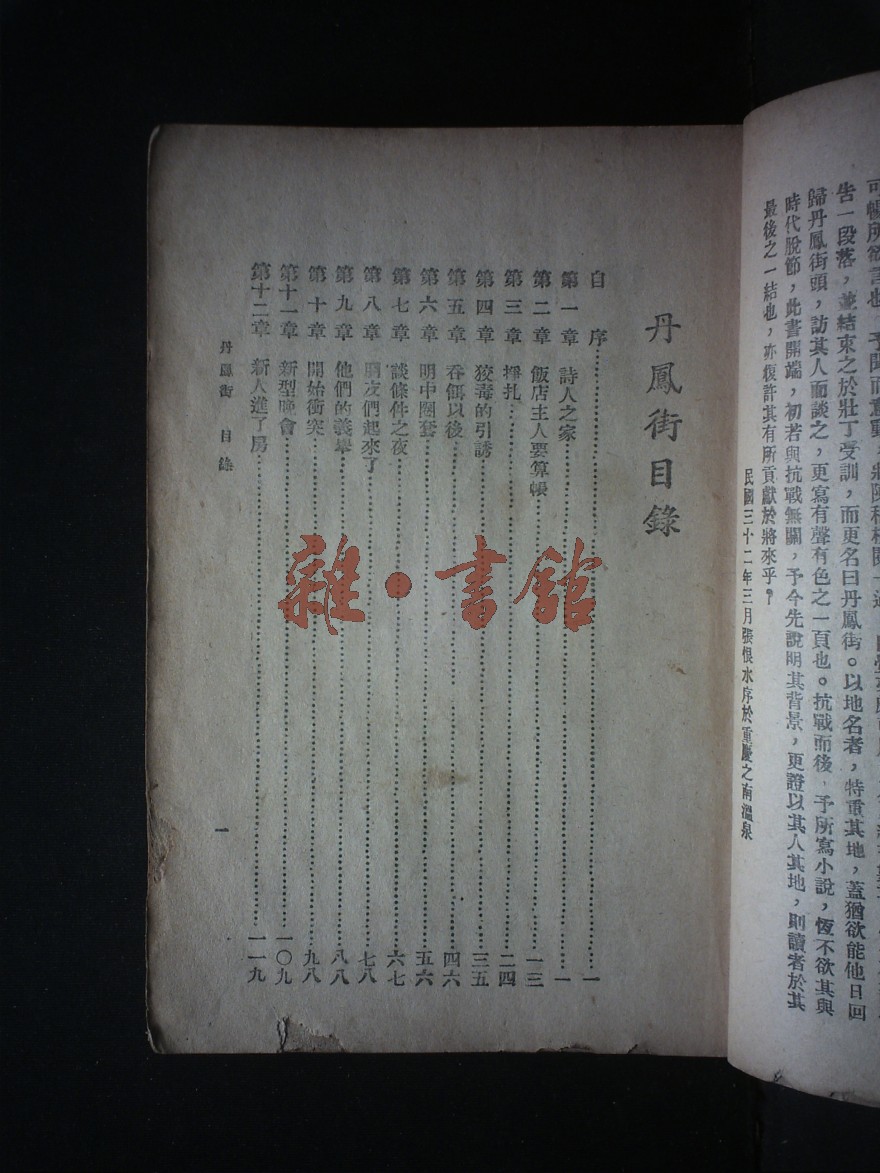 告一段落，並結束之於壯丁受訓，而更名曰丹鳳街。以地名者，特重其地，蓋猶欲能他日回
歸丹鳳街頭，訪其人而談之，更寫有聲有色之一頁也。抗戰而後，予所寫小說，恆不欲其與
時代脫節，此書開端，初若與抗戰無關，予今先說明其背景，更證以其人其地，則讀者於其
最後之一結也，亦復許其有所貢獻於將來乎？
民國三十二年三月張恨水序於重慶之南溫泉
丹鳳街目錄
自序……一
第一章 詩人之家……一
第二章 飯店主人要算帳……一三
第三章 掙扎……二四
第四章 狡毒的引誘……三五
第五章 吞餌以後……四六
第六章 明中圈套……五六
第七章 談條件之夜……六七
第八章 朋友們起來了……七八
第九章 他們的義舉……八八
第十章 開始衝突……九八
第十一章 新型晚會……一〇九
第十二章 新人進了房……一一九
丹鳳街 目錄
一
雜·書館